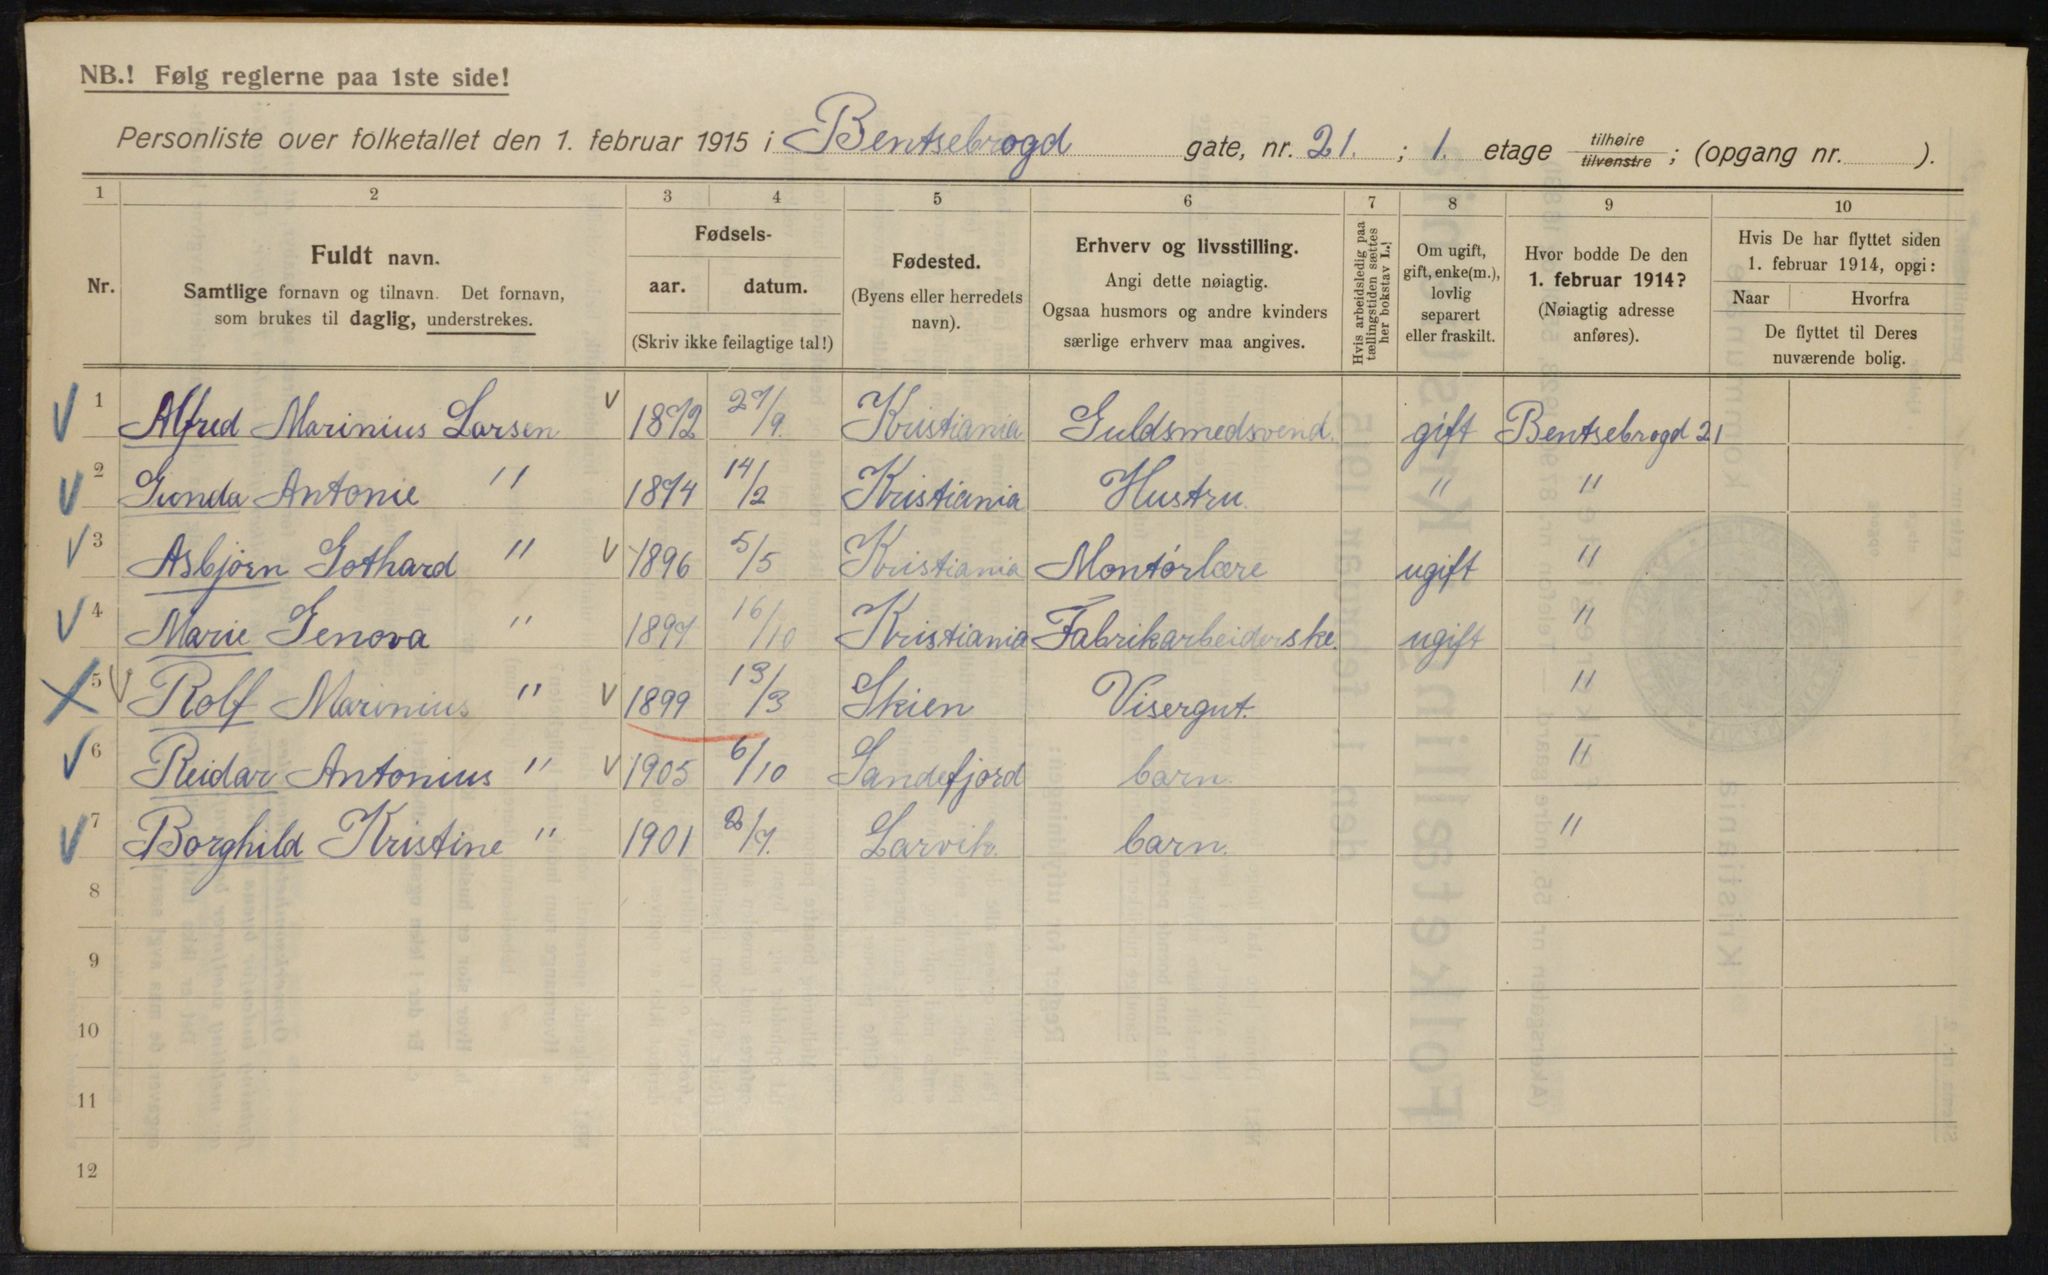 NB.! Følg reglerne paa 1ste side!
Personliste over folketallet den 1. februar 1915 i Bentsebrogd gate, nr. 21. ; 1. etage tilhøire tilvenstre ; (opgang nr. ).
1 2 3 4 5 6 7 8 9 10
Nr.
Fuldt navn.
Samtlige fornavn og tilnavn. Det fornavn,
som brukes til daglig, understrekes.
Fødsels-
aar. datum.
(Skriv ikke feilagtige tal!)
Fødested.
(Byens eller herredets
navn).
Erhverv og livsstilling.
Angi dette nøiagtig.
Ogsaa husmors og andre kvinders
særlige erhverv maa angives.
Hvis arbeidsledig paa
tællingstiden sættes
her bokstav L.!
Om ugift,
gift, enke(m.),
lovlig
separert
eller fraskilt.
Hvor bodde De den
1. februar 1914?
(Nøiagtig adresse
anføres).
Hvis De har flyttet siden
1. februar 1914, opgi:
Naar Hvorfra
De flyttet til Deres
nuværende bolig.
1 Alfred Marinius Larsen 1872 27/9. Kristiania Guldsmedsvend. gift Bentsebrogd 21
2 Gunda Antonie " 1874 14/2 Kristiania Hustru " "
3 Asbjørn Gothard " 1896 5/5 Kristiania Montørlære ugift "
4 Marie Genova " 1897 16/10 Kristiania Fabrikarbeiderske. ugift "
5 Rolf Marinius " 1899 13/3 Skien Visergut. "
6 Reidar Antonius " 1905 6/10 Sandefjord barn. "
7 Borghild Kristine " 1901 /7. Larvik. barn. "
8
9
10
11
12